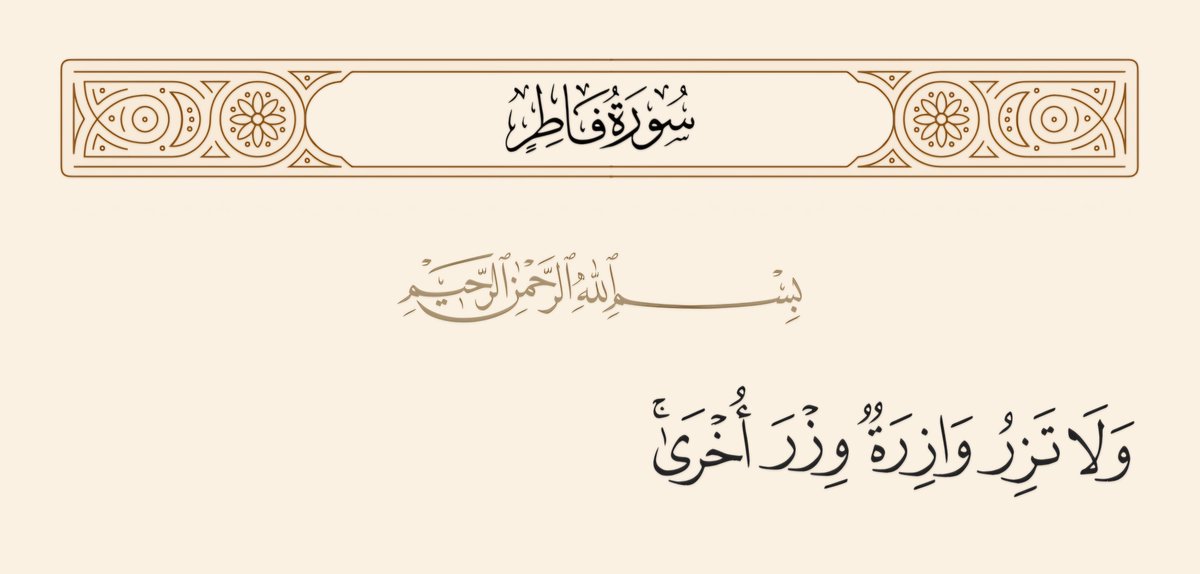 سُورَةُ فَاطِرٍ
بِسْمِ ٱللَّهِ ٱلرَّحْمَٰنِ ٱلرَّحِيمِ
وَلَا تَزِرُ وَازِرَةٌ وِزْرَ أُخْرَىٰۚ